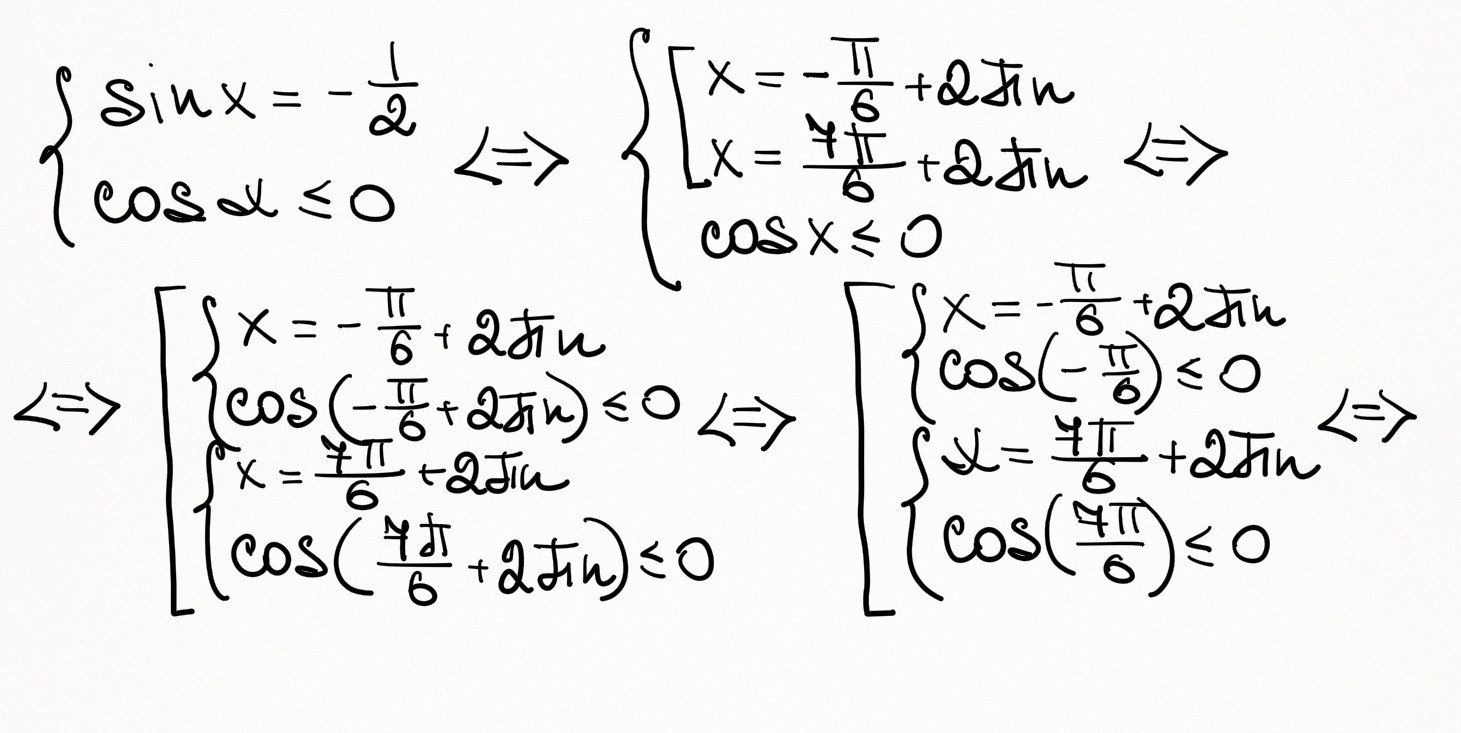 { sin x = -1/2
cos x ≤ 0 <=>
{ [ x = -π/6 + 2πn
x = 7π/6 + 2πn
cos x ≤ 0 <=>
<=> [ { x = -π/6 + 2πn
cos(-π/6 + 2πn) ≤ 0
{ x = 7π/6 + 2πn
cos(7π/6 + 2πn) ≤ 0 <=>
[ { x = -π/6 + 2πn
cos(-π/6) ≤ 0
{ x = 7π/6 + 2πn
cos(7π/6) ≤ 0 <=>